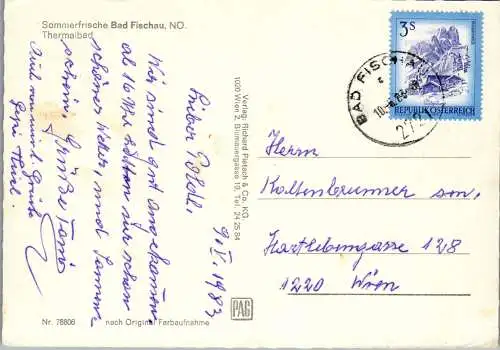 Sommerfrische Bad Fischau, NÖ.
Thermalbad
9.V.1983
Lieber
Wir sind gut angekommen
ab 16 Uhr hatten wir schon
schönes Wetter, und Sonnen-
schein. Grüße
Auch von mir Grüße
Verlag: Richard Pietsch & Co. KG.
1009 Wien 2, Blumauergasse 19, Tel. 24 25 84
3 S
REPUBLIK ÖSTERREICH
BAD FISCHAU
2721
Herrn
Kaltenbrunner sen.
Hartlebengasse 128
1220 Wien
PAG
Nr. 78806
nach Original Farbaufnahme